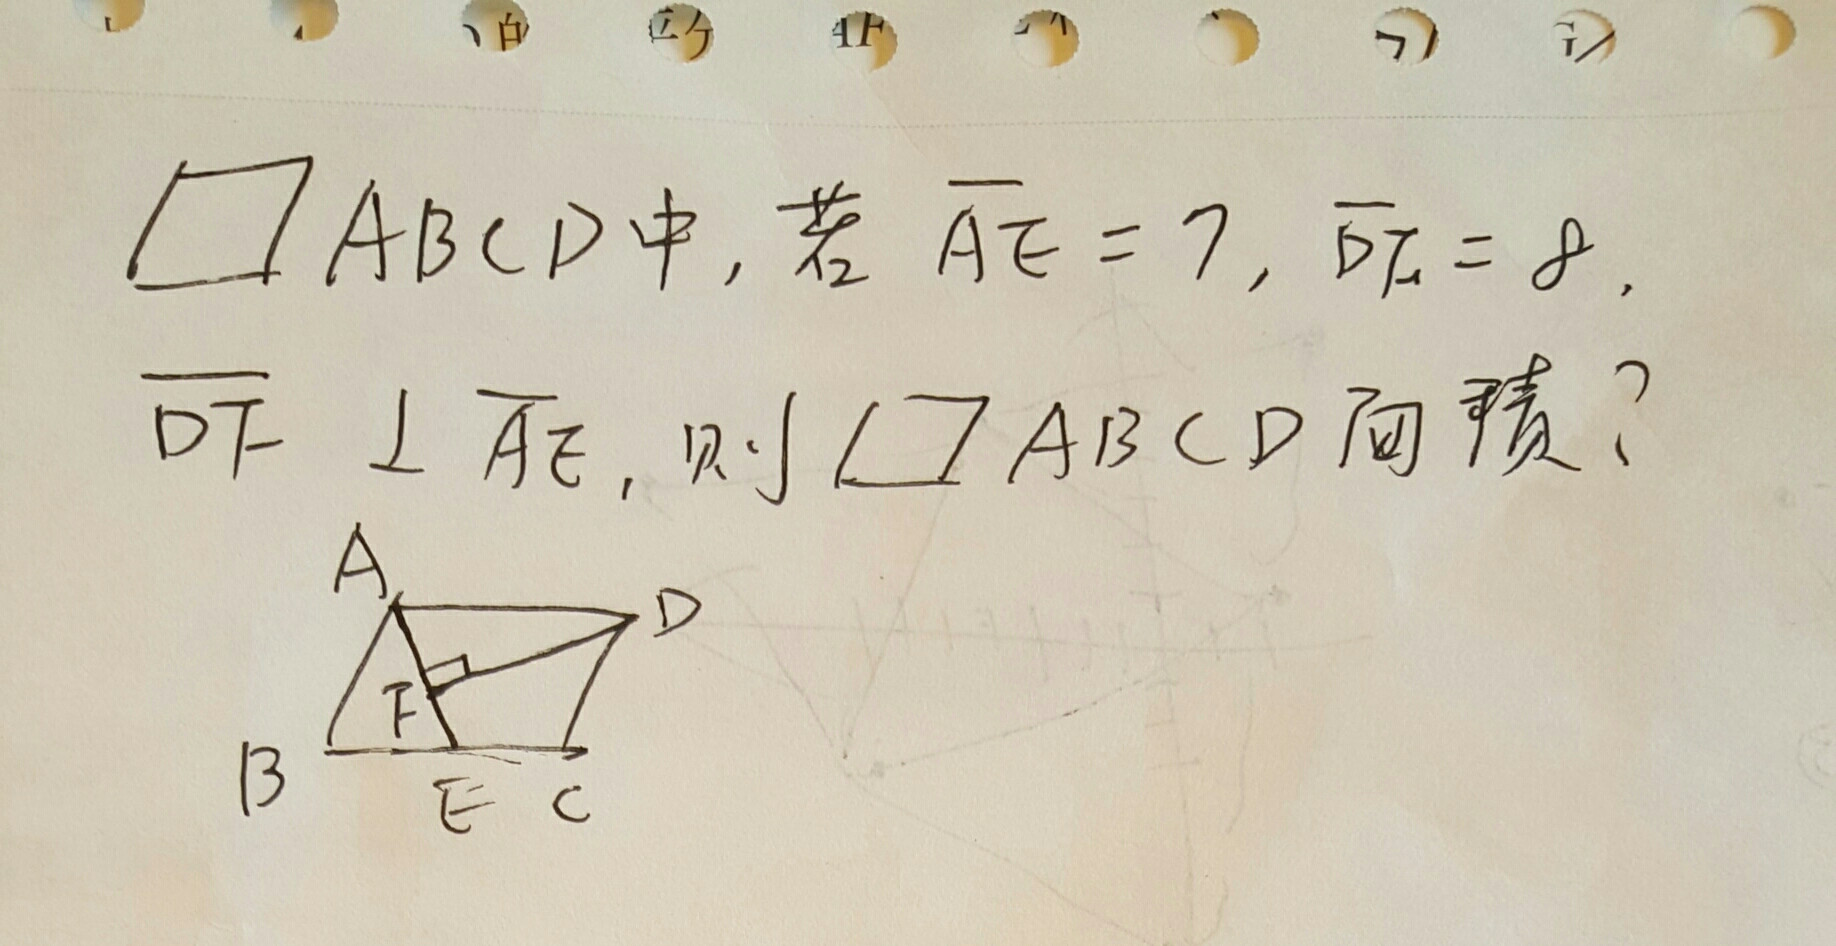 ▱ABCD中,若 A̅E̅=7, D̅F̅=8,
D̅F̅⊥A̅E̅,則▱ABCD面積?
A
D
F
B
E C